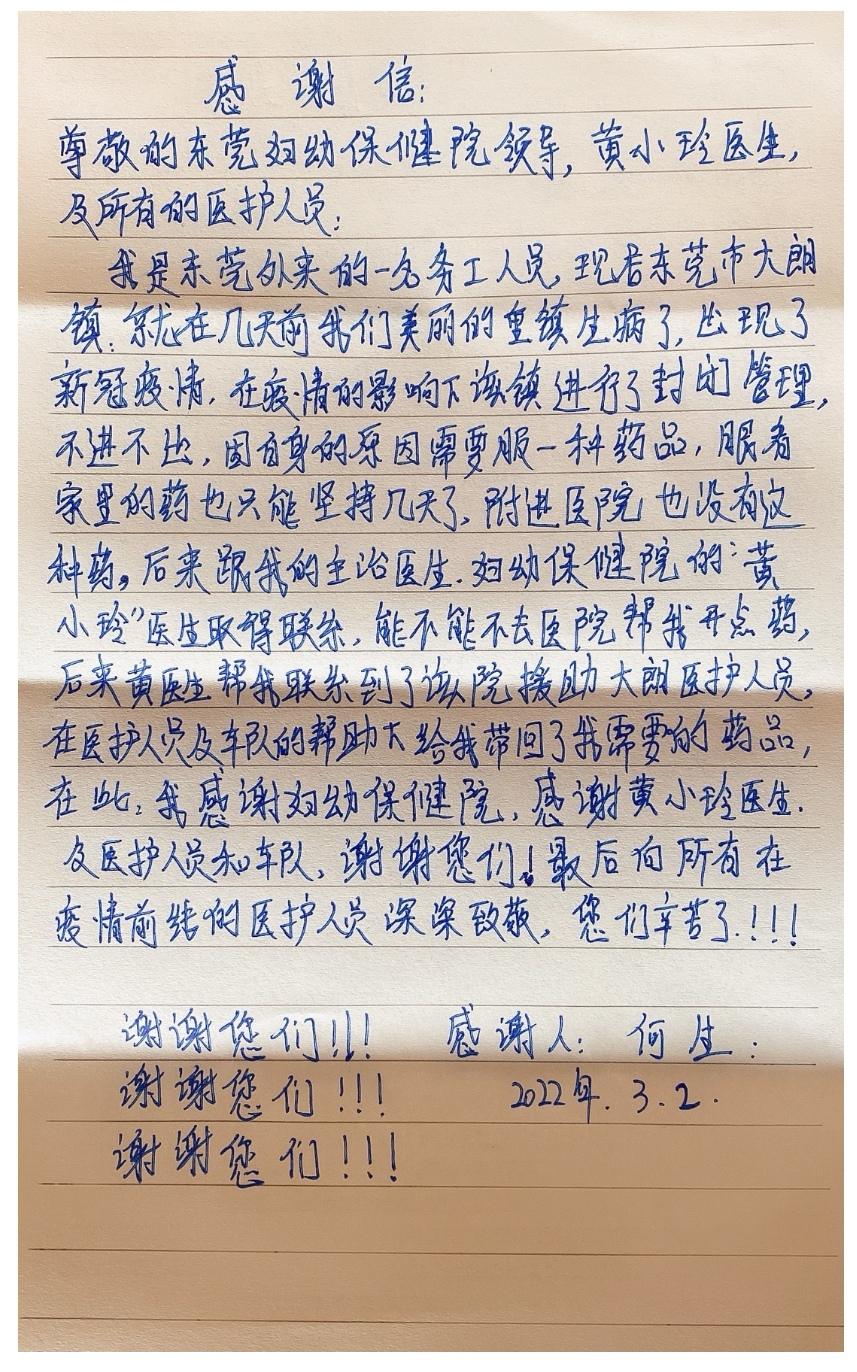 感谢信:
尊敬的东莞妇幼保健院领导,黄小玲医生,
及所有的医护人员:
我是东莞外来的一名务工人员,现居东莞市大朗
镇.就在几天前我们美丽的重镇生病了,出现了
新冠疫情.在疫情的影响下该镇进行了封闭管理,
不进不出,因自身的原因需要服一种药品,眼看
家里的药也只能坚持几天了.附进医院也没有这
种药。后来跟我的主治医生.妇幼保健院的“黄
小玲”医生取得联系,能不能不去医院帮我开点药,
后来黄医生帮我联系到了该院援助大朗医护人员,
在医护人员及车队的帮助大给我带回了我需要的药品,
在此:我感谢妇幼保健院,感谢黄小玲医生.
及医护人员和车队、谢谢您们!最后向所有在
疫情前线的医护人员深深致敬,您们辛苦了.!!!
谢谢您们!!! 感谢人: 何生:
谢谢您们!!! 2022年.3.2.
谢谢您们!!!